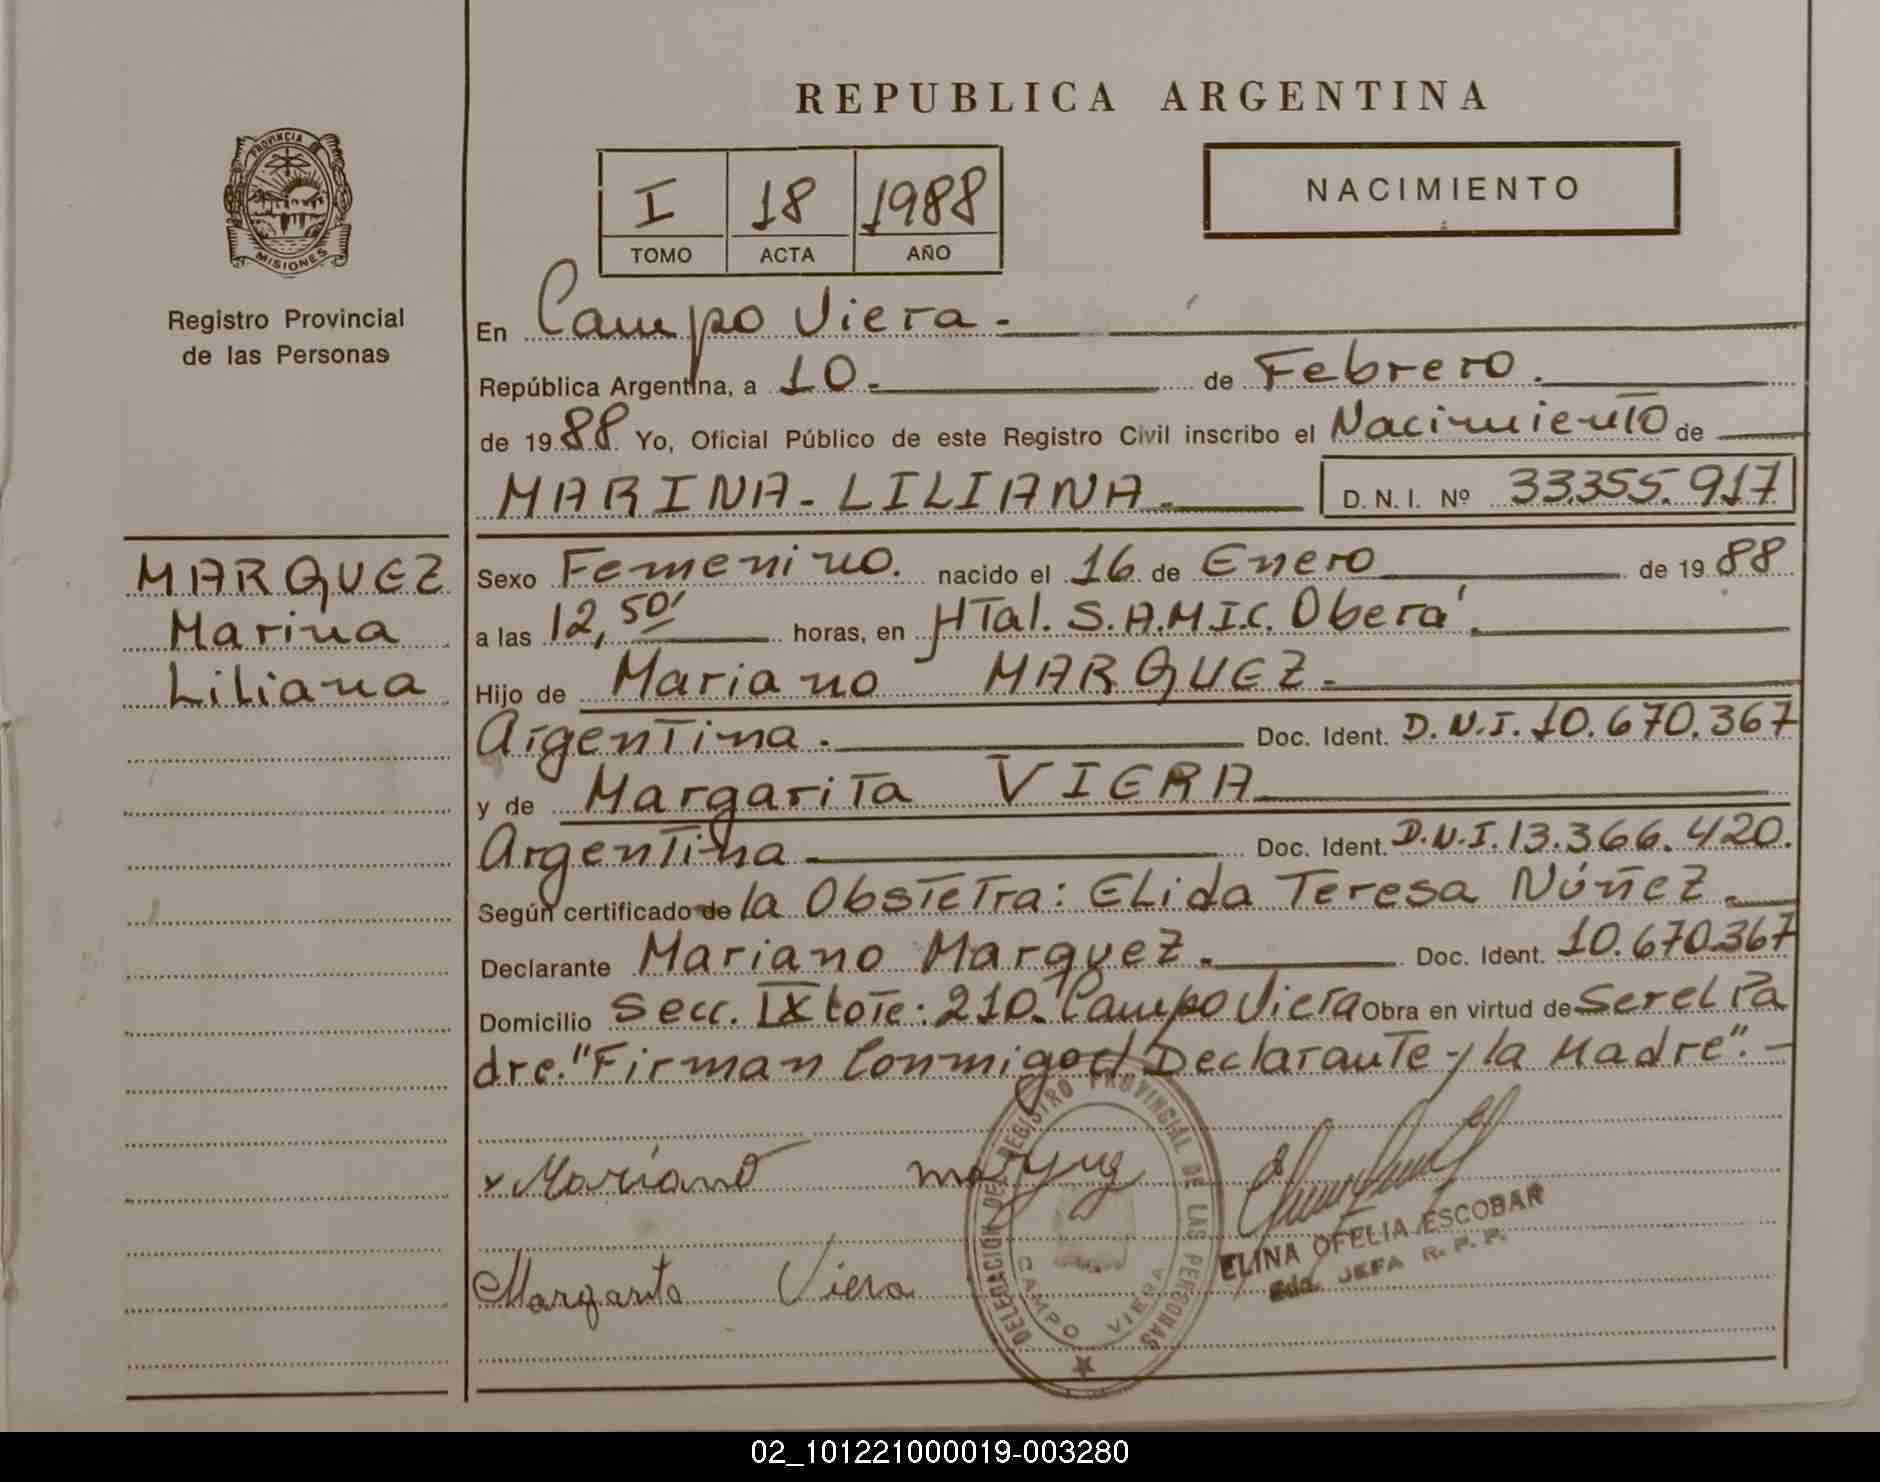 REPUBLICA ARGENTINA
PROVINCIA
MISIONES
Registro Provincial
de las Personas
I 18 1988
TOMO ACTA AÑO
NACIMIENTO
En Campo Viera.-
República Argentina, a 10. de Febrero.
de 19 88. Yo, Oficial Público de este Registro Civil inscribo el Nacimiento de
MARINA-LILIANA.- D. N. I. Nº 33.355.917
MARQUEZ
Marina
Liliana
Sexo Femenino. nacido el 16 de Enero de 19 88
a las 12,50' horas, en HTal. S.A.M.I.C. Oberá.
Hijo de Mariano MARQUEZ.-
Argentina. Doc. Ident. D.N.I. 10.670.367
y de Margarita VIERA
Argentina Doc. Ident. D.N.I. 13.366.420.
Según certificado de la Obstetra: Elida Teresa Núñez.
Declarante Mariano Marquez. Doc. Ident. 10.670.367
Domicilio Secc. IX Lote: 210. Campo Viera Obra en virtud de Ser el Pa
dre. "Firman Conmigo el Declarante y la Madre".-
x Mariano
Margarita Viera
DELEGACION DEL REGISTRO PROVINCIAL DE LAS PERSONAS
CAMPO VIERA
ELINA OFELIA ESCOBAR
JEFA R. P. P.
02_101221000019-003280